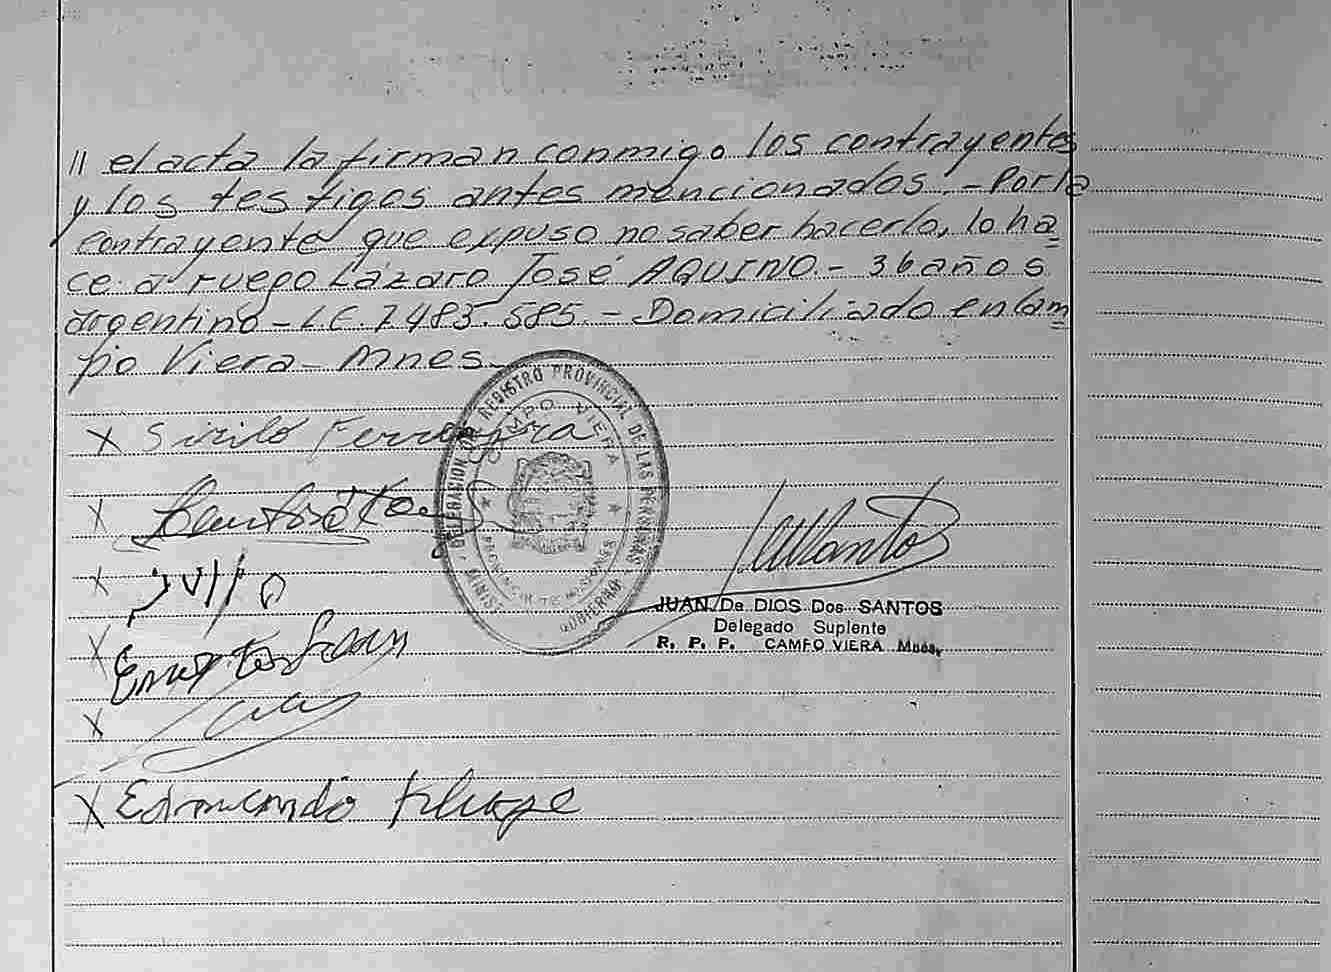 // el acta la firman conmigo los contrayentes
y los testigos antes mencionados.- Por la
contrayente que expuso no saber hacerlo, lo ha
ce a ruego Lázaro José AQUINO.- 36 años
argentino - L.E. 7.483.585.- Domiciliado en Cam
po Viera - Mnes.
DELEGACION DEL REGISTRO PROVINCIAL DE LAS PERSONAS
CAMPO VIERA
PROVINCIA DE MISIONES
MINIST. GOBIERNO
X Sirilo Ferreyra
X
X
X
X
X Edmundo
JUAN De DIOS Dos SANTOS
Delegado Suplente
R. P. P. CAMPO VIERA Mnes.